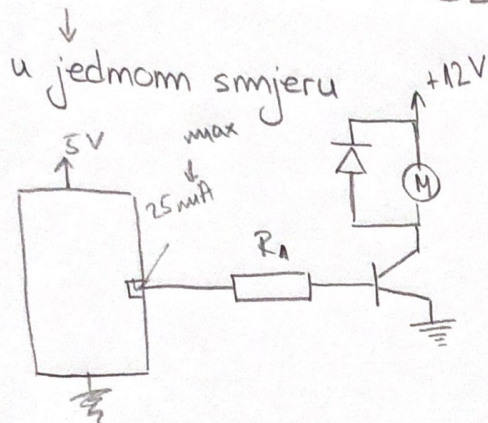 u jednom smjeru
+12V
5V
max
25mA
M
R1